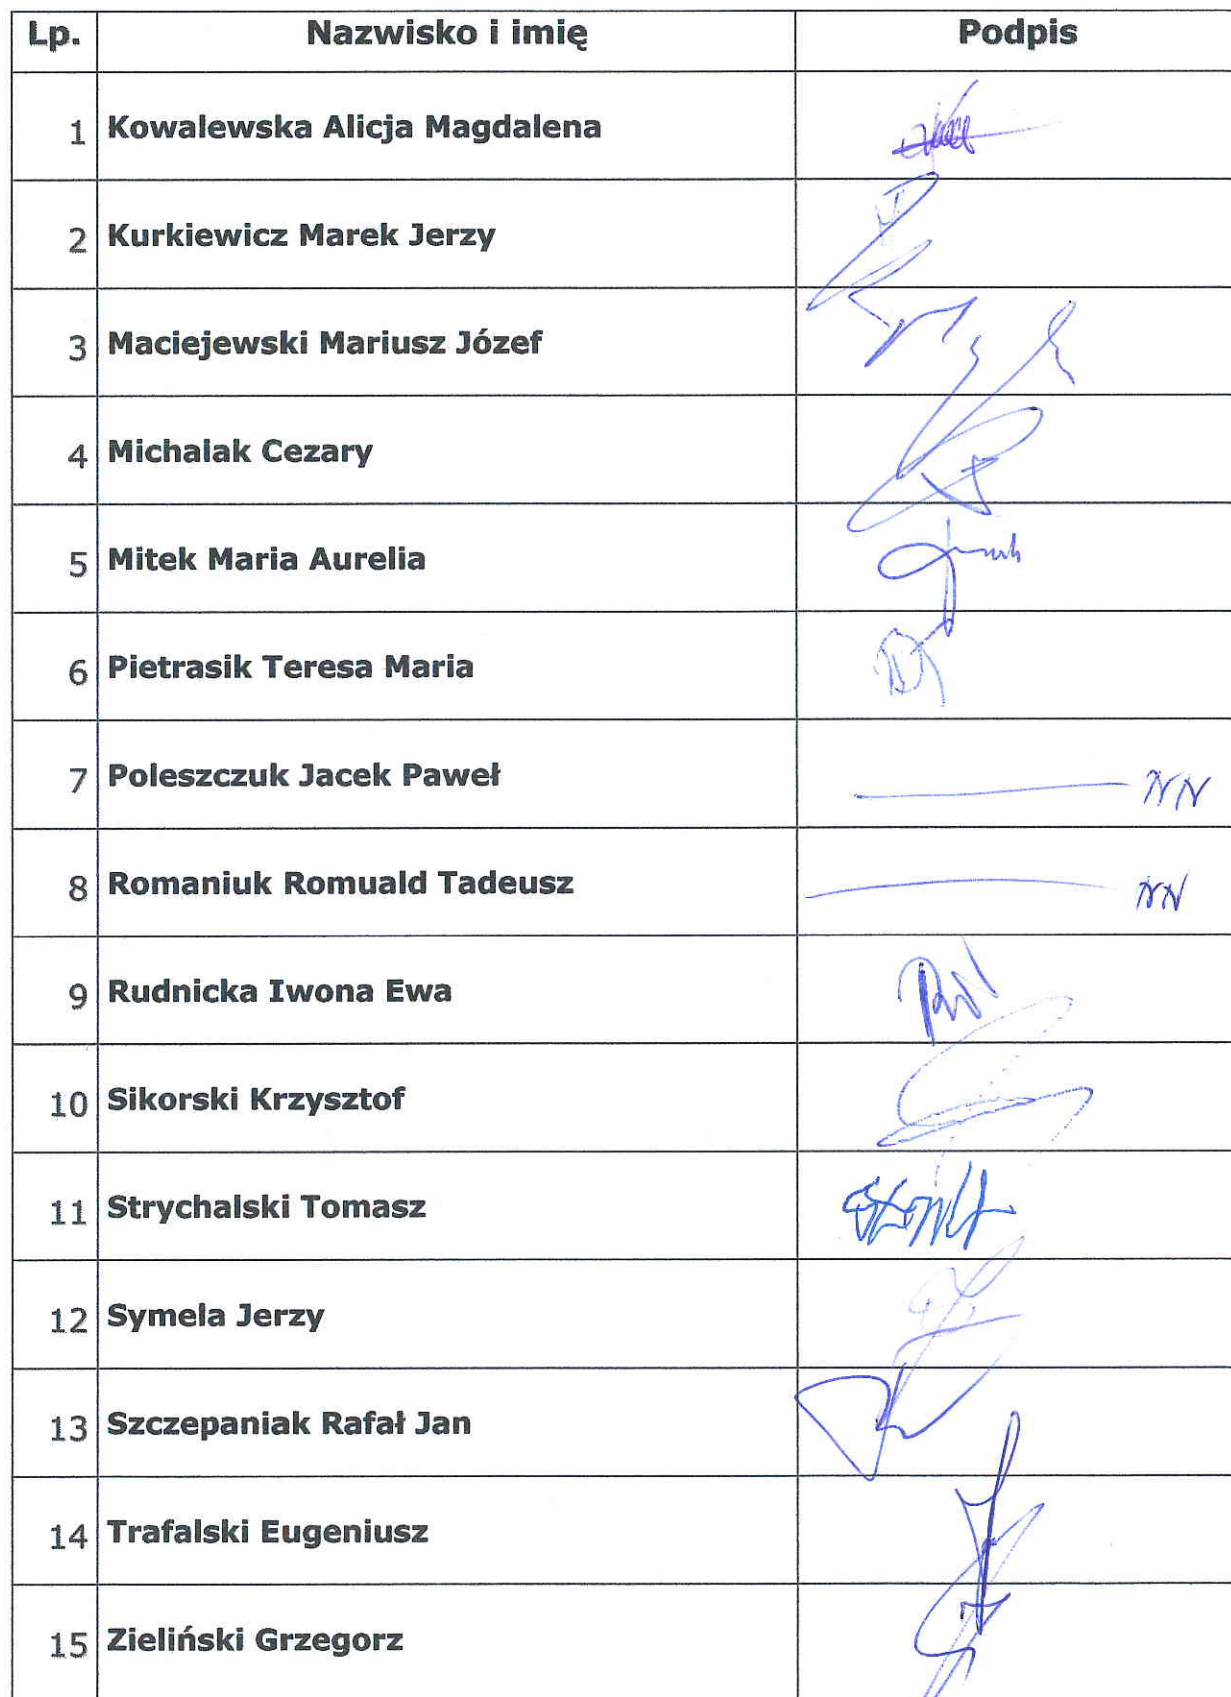 Lp. Nazwisko i imię Podpis
1 Kowalewska Alicja Magdalena
2 Kurkiewicz Marek Jerzy
3 Maciejewski Mariusz Józef
4 Michalak Cezary
5 Mitek Maria Aurelia
6 Pietrasik Teresa Maria
7 Poleszczuk Jacek Paweł NN
8 Romaniuk Romuald Tadeusz NN
9 Rudnicka Iwona Ewa
10 Sikorski Krzysztof
11 Strychalski Tomasz
12 Symela Jerzy
13 Szczepaniak Rafał Jan
14 Trafalski Eugeniusz
15 Zieliński Grzegorz